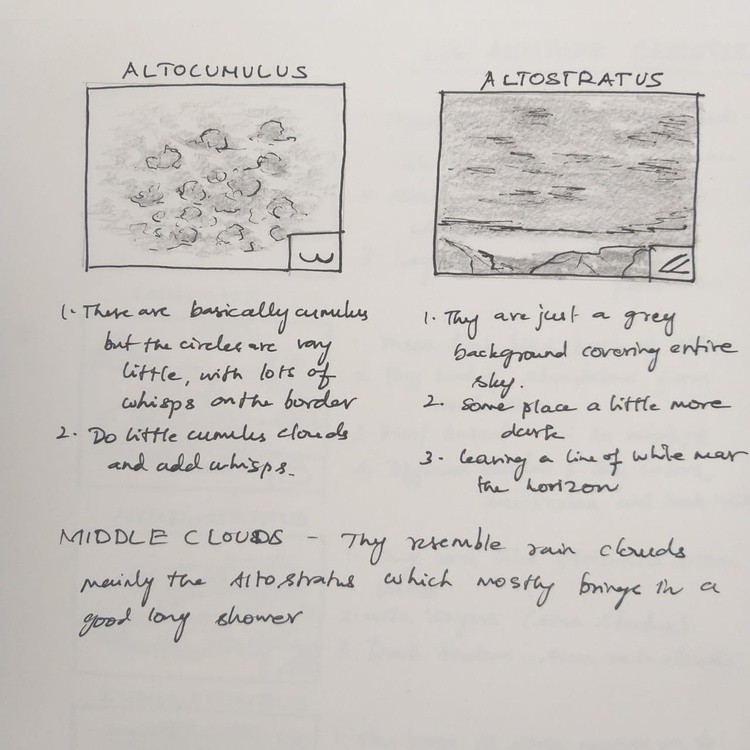 ALTOCUMULUS
1. These are basically cumulus
but the circles are very
little, with lots of
whisps on the border
2. Do little cumulus clouds
and add whisps.
ALTOSTRATUS
1. They are just a grey
background covering entire
sky.
2. Some place a little more
dark
3. leaving a line of white near
the horizon
MIDDLE CLOUDS - They resemble rain clouds
mainly the Altostratus which mostly brings in a
good long shower